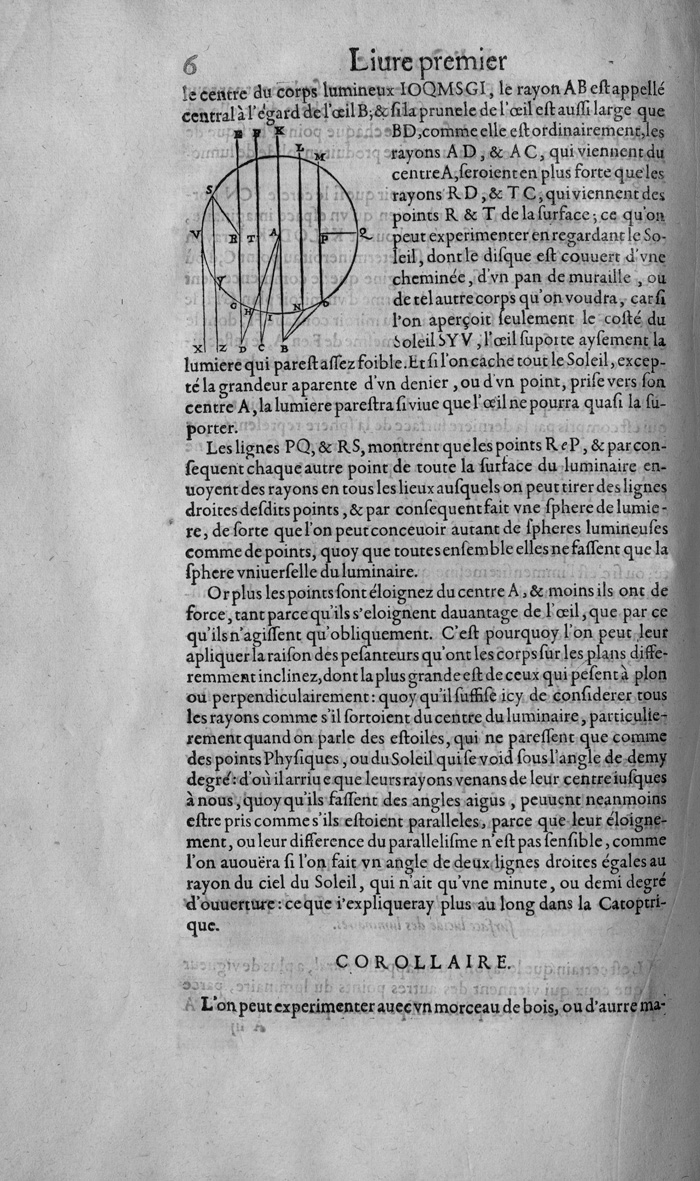 6 Liure premier
le centre du corps lumineux IOQMSGI, le rayon AB eſt appellé
central à l'égard de l'œil B; & ſi la prunele de l'œil eſt auſſi large que
BD, comme elle eſt ordinairement, les
rayons AD, & AC, qui viennent du
centre A, ſeroient en plus forte que les
rayons RD, & TC, qui viennent des
points R & T de la ſurface; ce qu'on
peut experimenter en regardant le So-
leil, dont le diſque eſt couuert d'vne
cheminée, d'vn pan de muraille, ou
de tel autre corps qu'on voudra, car ſi
l'on aperçoit ſeulement le coſté du
Soleil SYV, l'œil ſuporte ayſement la
E F K
L M
S
V R T A P Q
Y
G H I N O
X Z D C B
lumiere qui pareſt aſſez foible. Et ſi l'on cache tout le Soleil, excep-
té la grandeur aparente d'vn denier, ou d'vn point, priſe vers ſon
centre A, la lumiere pareſtra ſi viue que l'œil ne pourra quaſi la ſu-
porter.
Les lignes PQ, & RS, montrent que les points R e P, & par con-
ſequent chaque autre point de toute la ſurface du luminaire en-
uoyent des rayons en tous les lieux auſquels on peut tirer des lignes
droites deſdits points, & par conſequent fait vne ſphere de lumie-
re, de ſorte que l'on peut conceuoir autant de ſpheres lumineuſes
comme de points, quoy que toutes enſemble elles ne faſſent que la
ſphere vniuerſelle du luminaire.
Or plus les points ſont éloignez du centre A, & moins ils ont de
force, tant parce qu'ils s'eloignent dauantage de l'œil, que par ce
qu'ils n'agiſſent qu'obliquement. C'eſt pourquoy l'on peut leur
apliquer la raiſon des peſanteurs qu'ont les corps ſur les plans diffe-
remment inclinez, dont la plus grande eſt de ceux qui peſent à plon
ou perpendiculairement: quoy qu'il ſuffiſe icy de conſiderer tous
les rayons comme s'il ſortoient du centre du luminaire, particulie-
rement quand on parle des eſtoiles, qui ne pareſſent que comme
des points Phyſiques, ou du Soleil qui ſe void ſous l'angle de demy
degré: d'où il arriue que leurs rayons venans de leur centre iuſques
à nous, quoy qu'ils faſſent des angles aigus, peuuent neanmoins
eſtre pris comme s'ils eſtoient paralleles, parce que leur éloigne-
ment, ou leur difference du paralleliſme n'eſt pas ſenſible, comme
l'on auouëra ſi l'on fait vn angle de deux lignes droites égales au
rayon du ciel du Soleil, qui n'ait qu'vne minute, ou demi degré
d'ouuerture: ce que i'expliqueray plus au long dans la Catoptri-
que.
COROLLAIRE.
L'on peut experimenter auec vn morceau de bois, ou d'aurre ma-